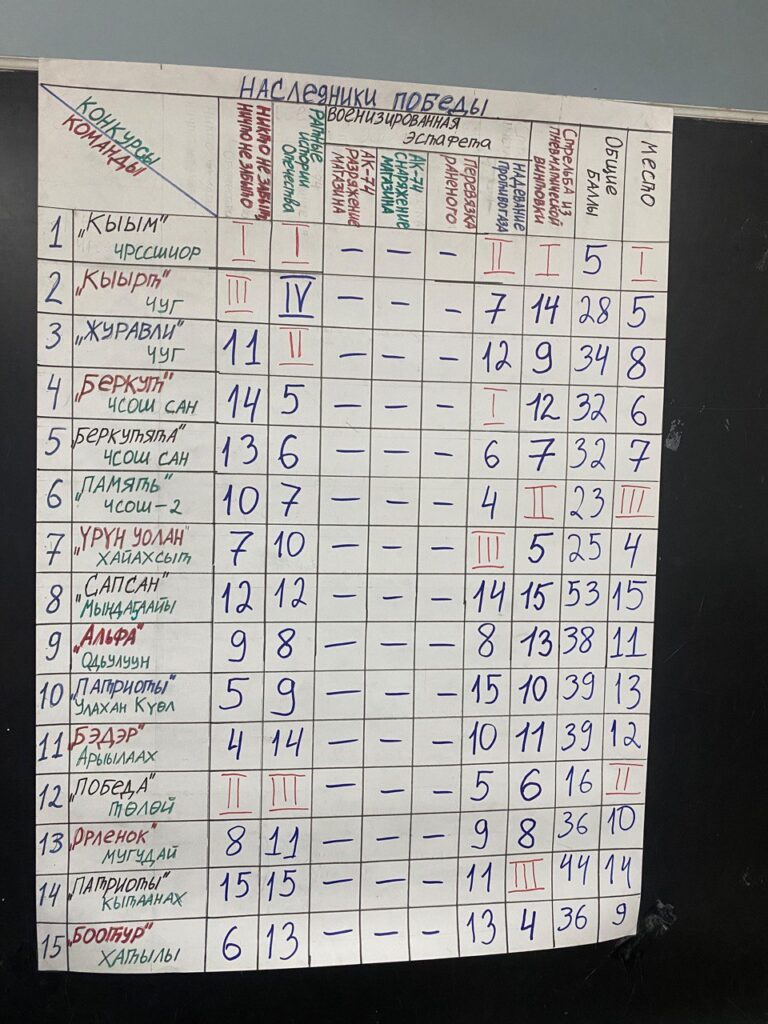 НАСЛЕДНИКИ ПОБЕДЫ
КОНКУРСЫ
КОМАНДЫ
НИКТО НЕ ЗАБЫТ,
НИЧТО НЕ ЗАБЫТО
РАТНЫЕ
ИСТОРИИ
ОТЕЧЕСТВА
ВОЕНИЗИРОВАННАЯ
ЭСТАФЕТА
АК-74
РАЗРЯЖЕНИЕ
МАГАЗИНА
АК-74
СНАРЯЖЕНИЕ
МАГАЗИНА
ПЕРЕВЯЗКА
РАНЕНОГО
НАДЕВАНИЕ
ПРОТИВОГАЗА
СТРЕЛЬБА ИЗ
ПНЕВМАТИЧЕСКОЙ
ВИНТОВКИ
ОБЩИЕ
БАЛЛЫ
МЕСТО
1 „КЫЫМ" I I – – – II I 5 I
ЧРССШИОР
2 „КЫЫРТ" III IV – – – 7 14 28 5
ЧУГ
3 „ЖУРАВЛИ" 11 II – – – 12 9 34 8
ЧУГ
4 „БЕРКУТ" 14 5 – – – I 12 32 6
ЧСОШ САН
5 „БЕРКУТЯТА" 13 6 – – – 6 7 32 7
ЧСОШ САН
6 „ПАМЯТЬ" 10 7 – – – 4 II 23 III
ЧСОШ-2
7 „ҮРҮҤ УОЛАН" 7 10 – – – III 5 25 4
ХАЙАХСЫТ
8 „САПСАН" 12 12 – – – 14 15 53 15
МЫНДАҔАЙЫ
9 „АЛЬФА" 9 8 – – – 8 13 38 11
ОДЬУЛУУН
10 „ПАТРИОТЫ" 5 9 – – – 15 10 39 13
УЛАХАН КҮӨЛ
11 „БЭДЭР" 4 14 – – – 10 11 39 12
АРЫЫЛААХ
12 „ПОБЕДА" II III – – – 5 6 16 II
ТӨЛӨЙ
13 „ОРЛЕНОК" 8 11 – – – 9 8 36 10
МУГУДАЙ
14 „ПАТРИОТЫ" 15 15 – – – 11 III 44 14
КЫТААНАХ
15 „БООТУР" 6 13 – – – 13 4 36 9
ХАТЫЛЫ